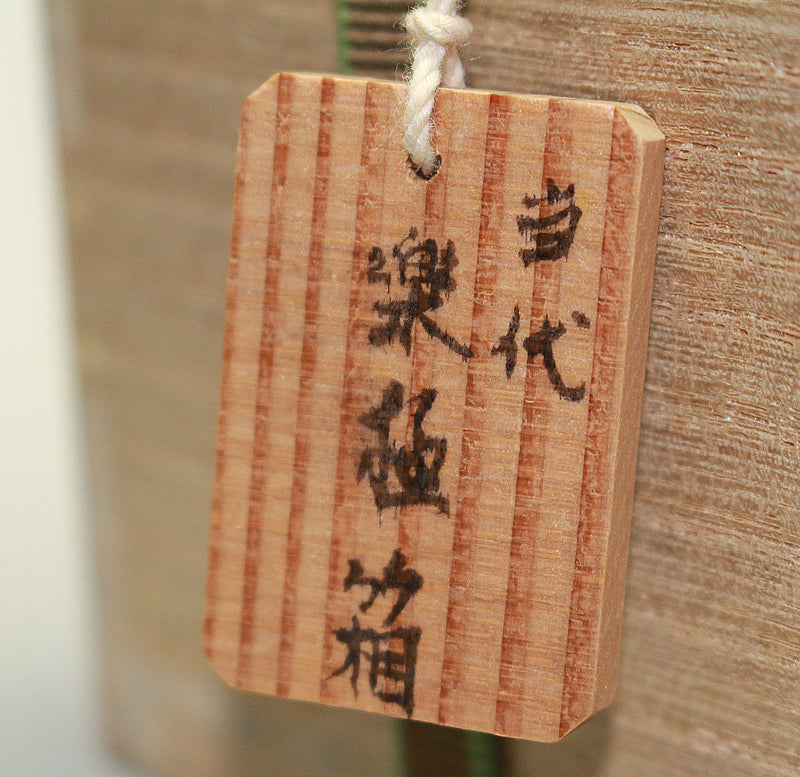 当代
樂極箱